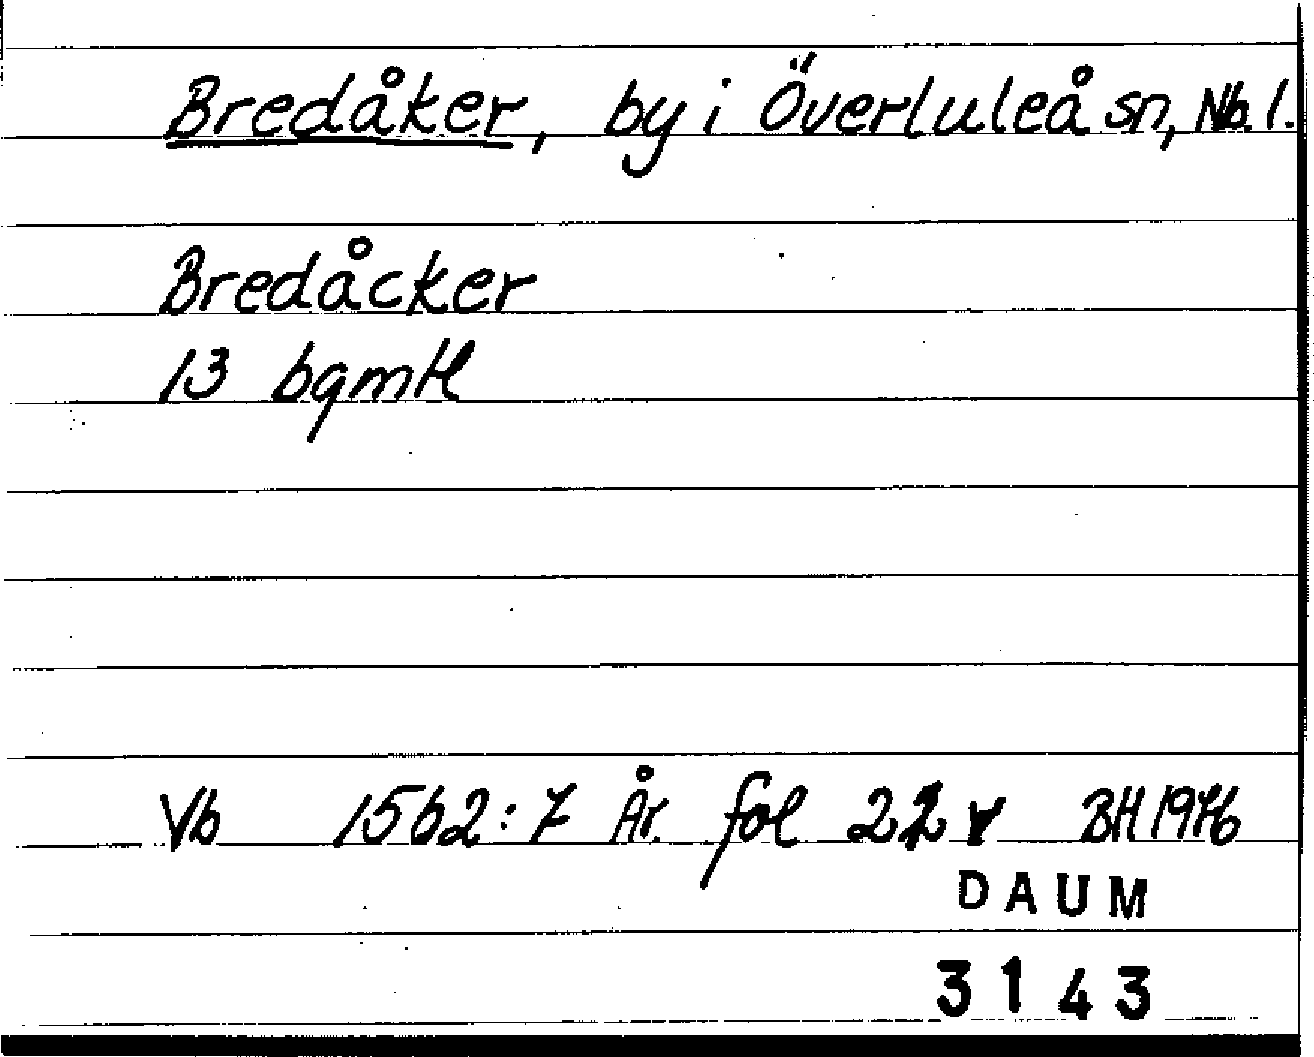 Bredåker, by i Överluleå sn, Nb. l.
Bredåcker
13 bgmtl
Vb 1562:7 År. fol 22 v BH 1976
DAUM
3143